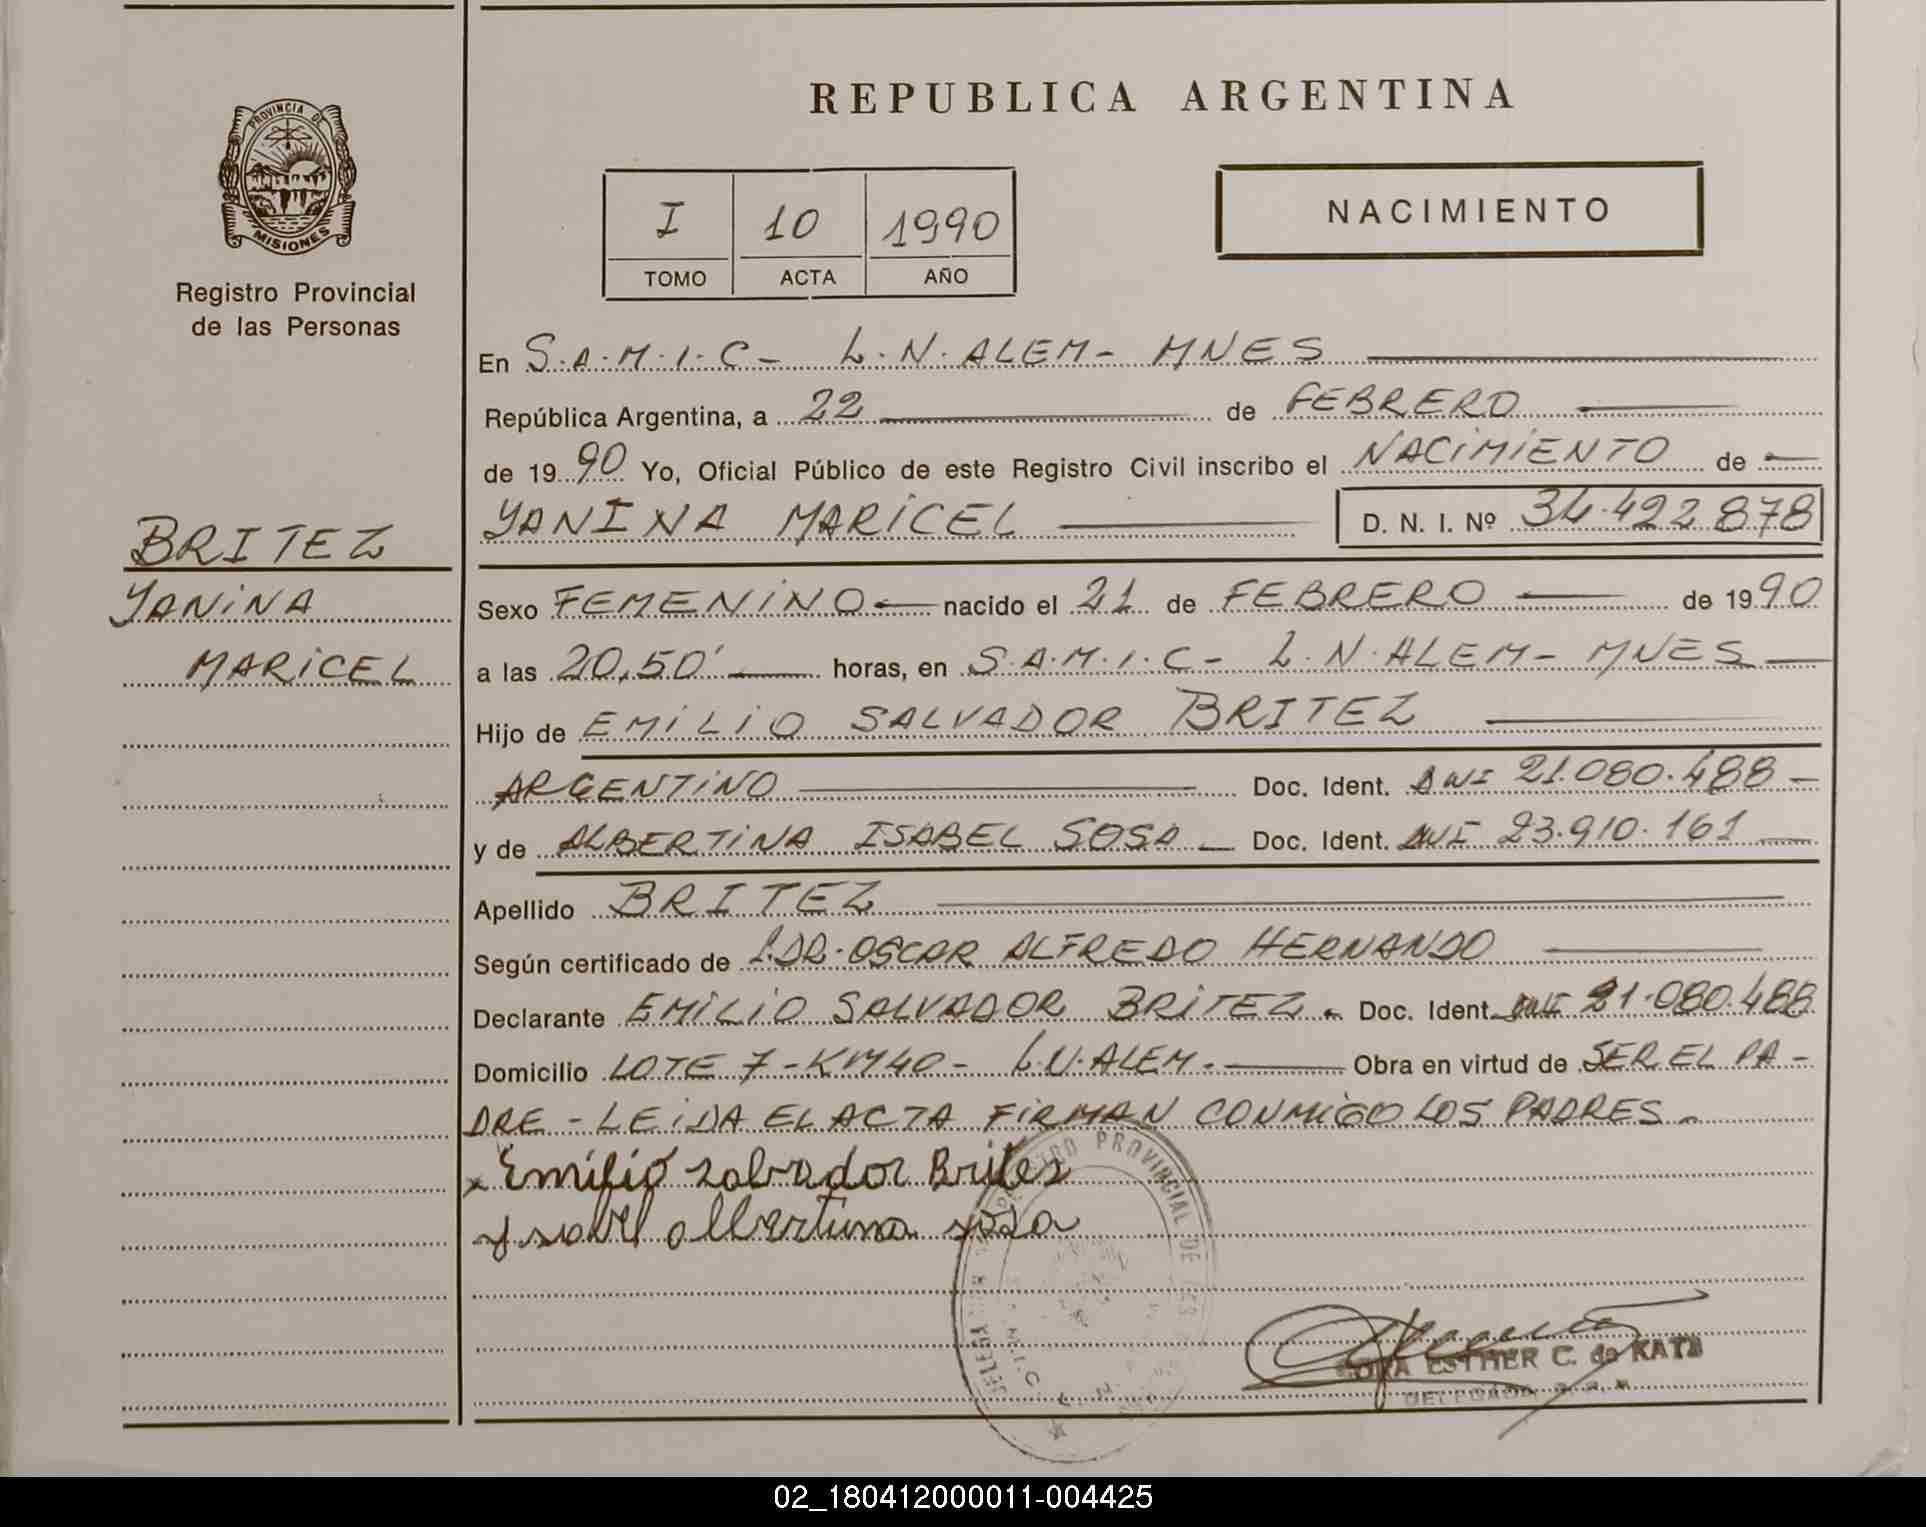 PROVINCIA DE
MISIONES
Registro Provincial
de las Personas
BRITEZ
YANINA
MARICEL
REPUBLICA ARGENTINA
I 10 1990
TOMO ACTA AÑO
NACIMIENTO
En S.A.M.I.C- L.N.ALEM- MNES
República Argentina, a 22 de FEBRERO
de 1990 Yo, Oficial Público de este Registro Civil inscribo el NACIMIENTO de
YANINA MARICEL D. N. I. Nº 34.492878
Sexo FEMENINO nacido el 21 de FEBRERO de 1990
a las 20,50' horas, en S.A.M.I.C- L.N.ALEM- MNES
Hijo de EMILIO SALVADOR BRITEZ
ARGENTINO Doc. Ident. DNI 21.080.488-
y de ALBERTINA ISABEL SOSA Doc. Ident. DNI 23.910.161
Apellido BRITEZ
Según certificado de DR. OSCAR ALFREDO HERNANDO
Declarante EMILIO SALVADOR BRITEZ. Doc. Ident. DNI 21.080.488
Domicilio LOTE 7-KM40- L.N.ALEM. Obra en virtud de SER EL PA-
DRE - LEIDA EL ACTA FIRMAN CONMIGO LOS PADRES.
x Emilio Salvador Britez
Ysabel albertina sosa
REGISTRO PROVINCIAL DE
ESTHER C. de KATZ
02_180412000011-004425